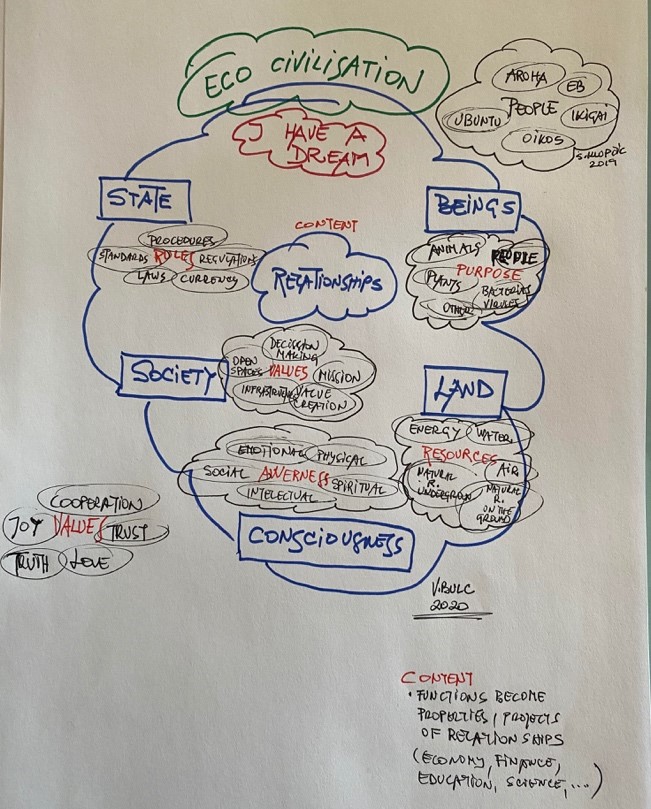 ECO CIVILISATION
I HAVE A
DREAM
AROHA
EB
PEOPLE
UBUNTU
IKIGAI
OIKOS
S. KLOPČIČ
2019
STATE
PROCEDURES
STANDARDS RULES REGULATIONS
LAWS CURRENCY
CONTENT
RELATIONSHIPS
BEINGS
ANIMALS PEOPLE
PURPOSE
PLANTS
BACTERIAS
VIRUSES
OTHER
SOCIETY
DECISSION
MAKING
OPEN
SPACES VALUES MISSION
INFRASTRUCTURE VALUE
CREATION
LAND
ENERGY WATER
RESOURCES
AIR
NATURAL
R.
UNDERGROUND
NATURAL
R.
ON THE
GROUND
EMOTIONAL PHYSICAL
SOCIAL AWERNESS SPIRITUAL
INTELECTUAL
CONSCIOUSNESS
COOPERATION
JOY VALUES TRUST
TRUTH LOVE
V.BULC
2020
CONTENT
• FUNCTIONS BECOME
PROPERTIES / PROJECTS
OF RELATIONSHIPS
(ECONOMY, FINANCE,
EDUCATION, SCIENCE,...)